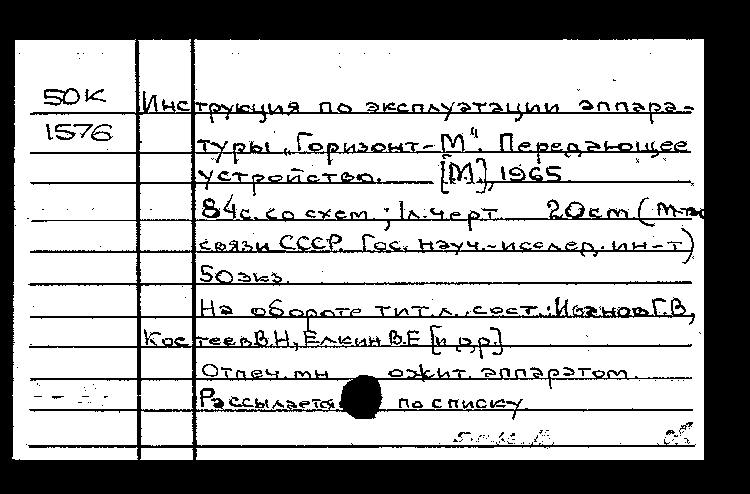 50К
1576
Инструкция по эксплуатации аппара-
туры „Горизонт-М“. Передающее
устройство. [М], 1965.
84с. со схем.; 1л. черт 20cm (м-во
связи СССР. Гос. науч.-исслед. ин-т)
50 экз.
На обороте тит. л. сост.: Иванов Г.В,
Костеев В.Н, Елкин В.Е [и др.]
Отпеч. мн ожит. аппаратом.
Рассылается по списку.